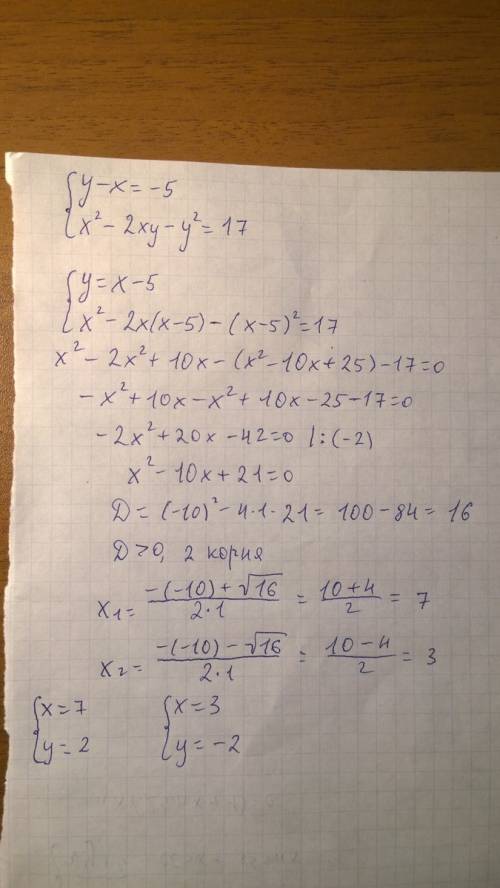 {y-x=-5
{x²-2xy-y²=17
{y=x-5
{x²-2x(x-5)-(x-5)²=17
x²-2x²+10x-(x²-10x+25)-17=0
-x²+10x-x²+10x-25-17=0
-2x²+20x-42=0 /:(-2)
x²-10x+21=0
D=(-10)²-4·1·21=100-84=16
D>0, 2 корня
x₁=(-(-10)+√16)/(2·1)=(10+4)/2=7
x₂=(-(-10)-√16)/(2·1)=(10-4)/2=3
{x=7 {x=3
{y=2 {y=-2